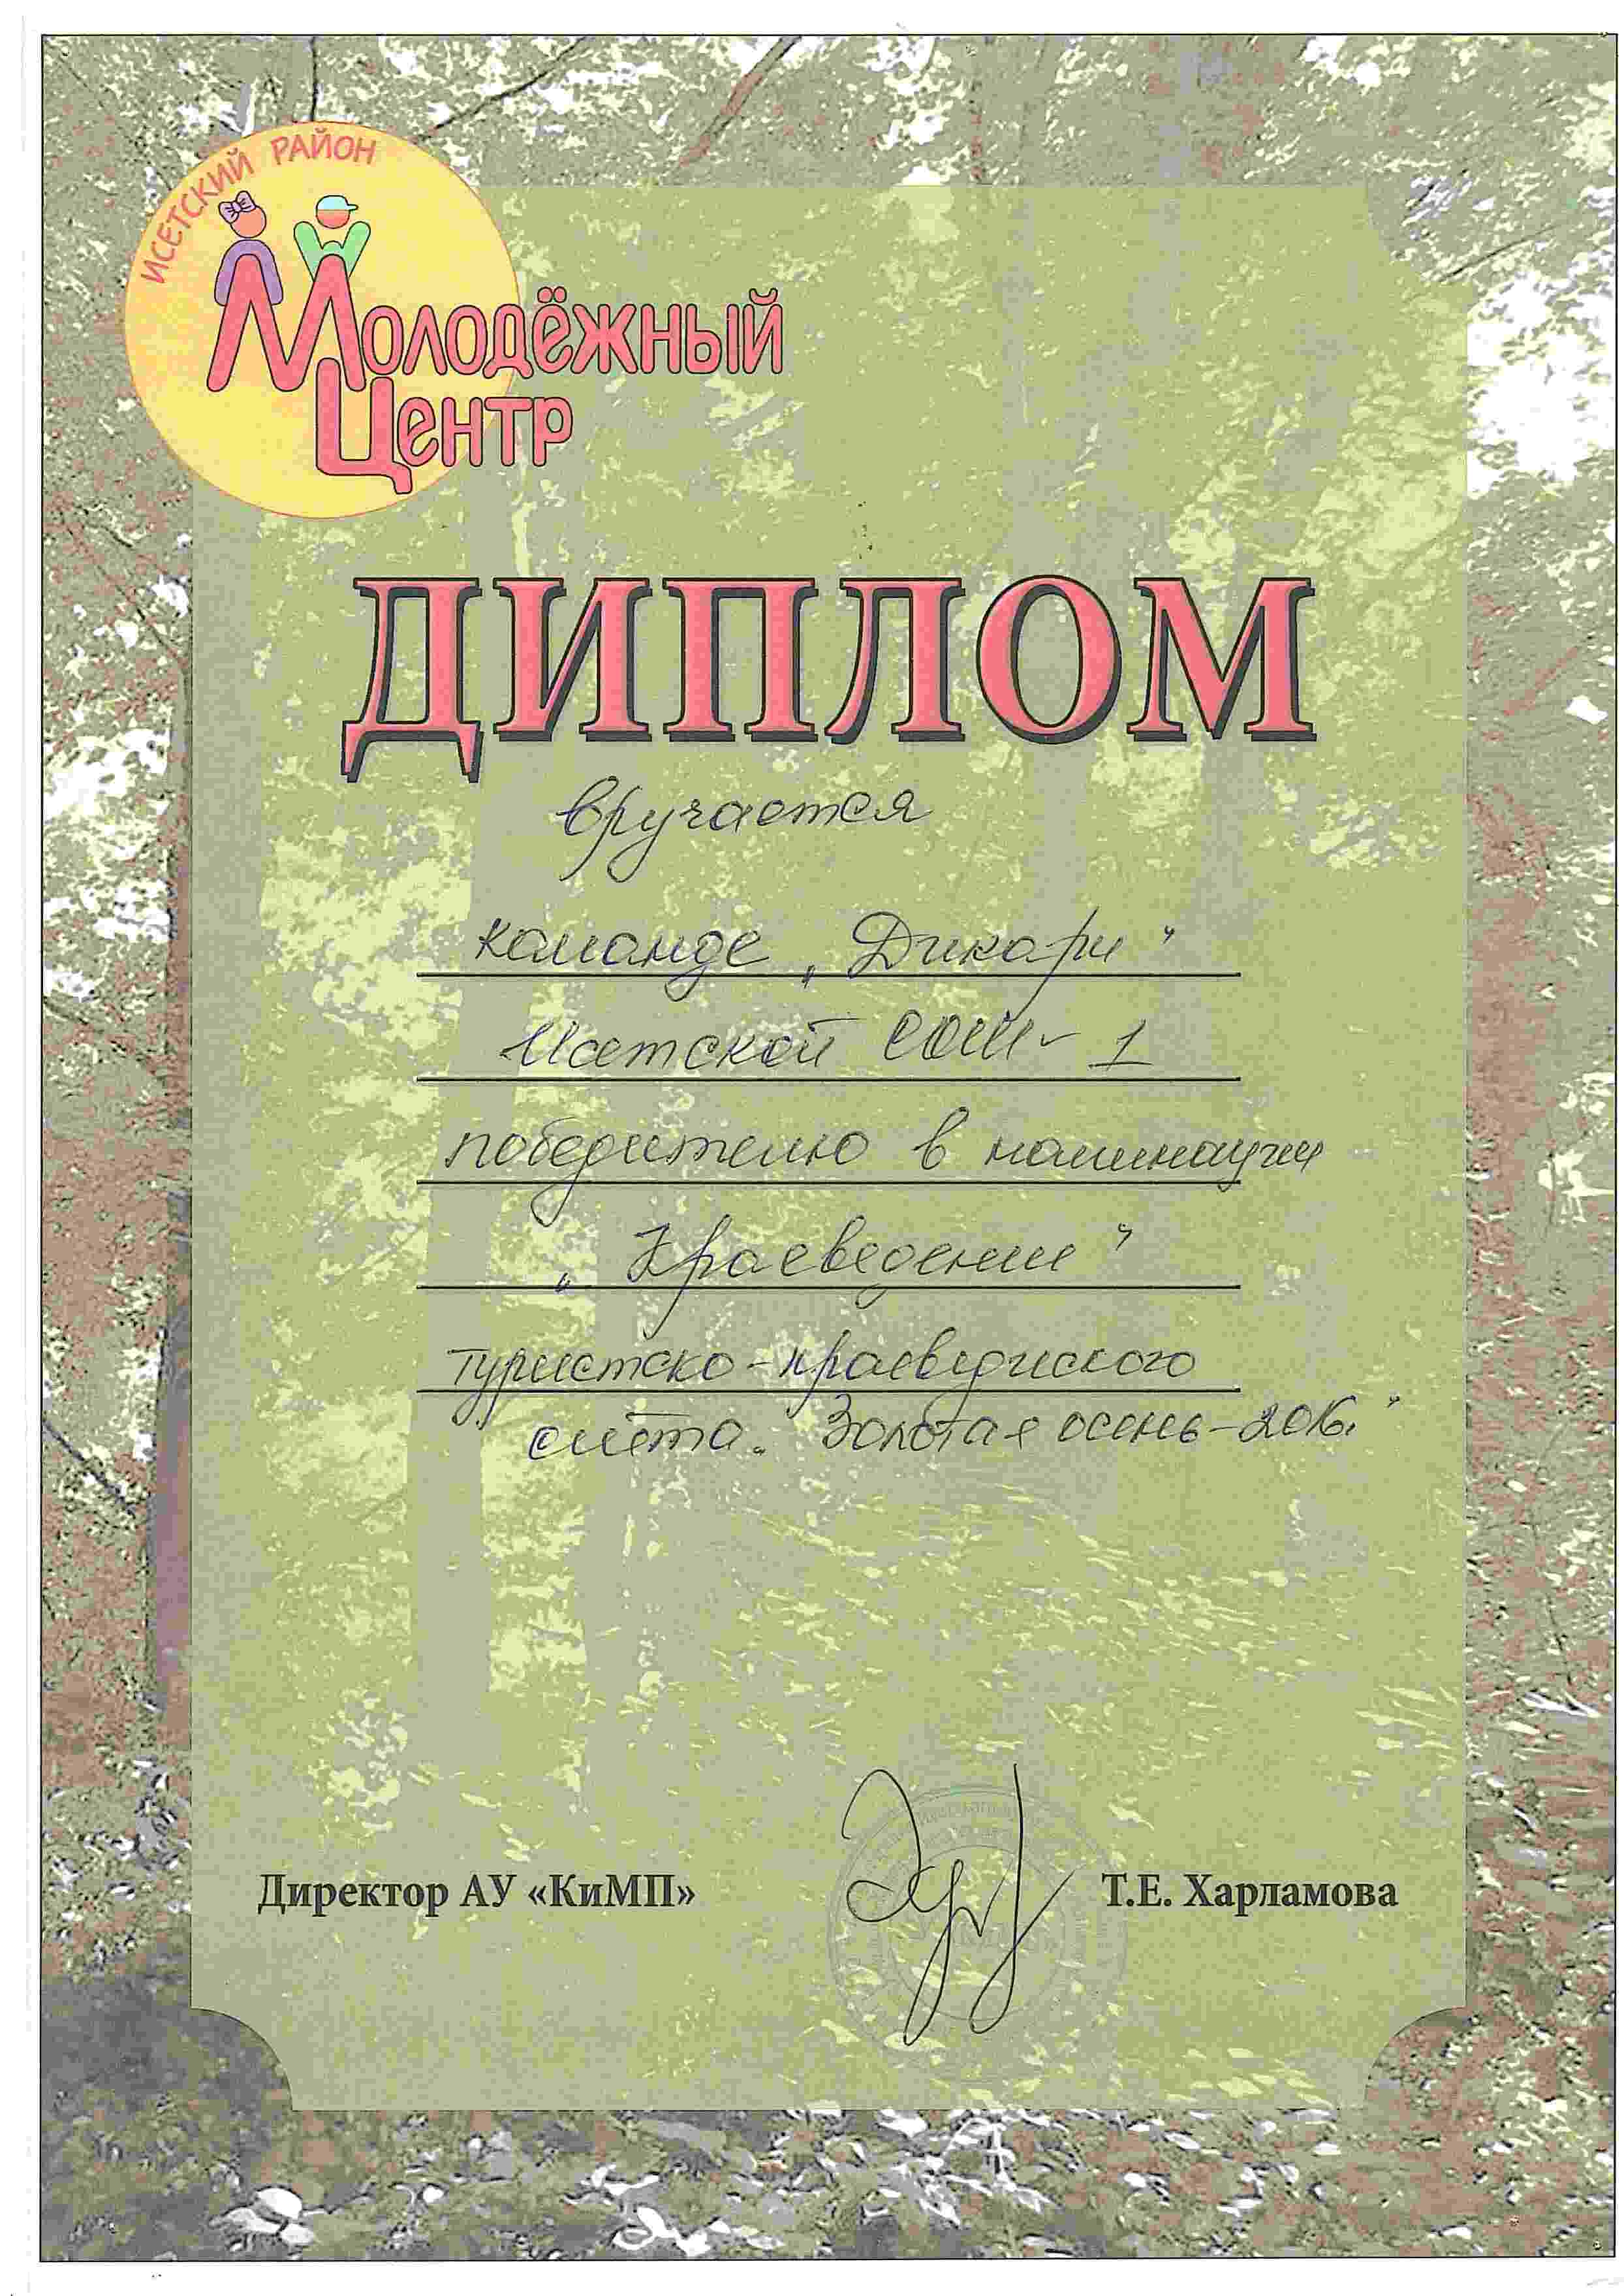 ИСЕТСКИЙ РАЙОН
Молодёжный
Центр
ДИПЛОМ
вручается
команде „Дикари“
Исетской СОШ-1
победителю в номинации
„Краеведение“
туристско-краеведческого
слёта „Золотая осень-2016.“
Директор АУ «КиМП»
Т.Е. Харламова